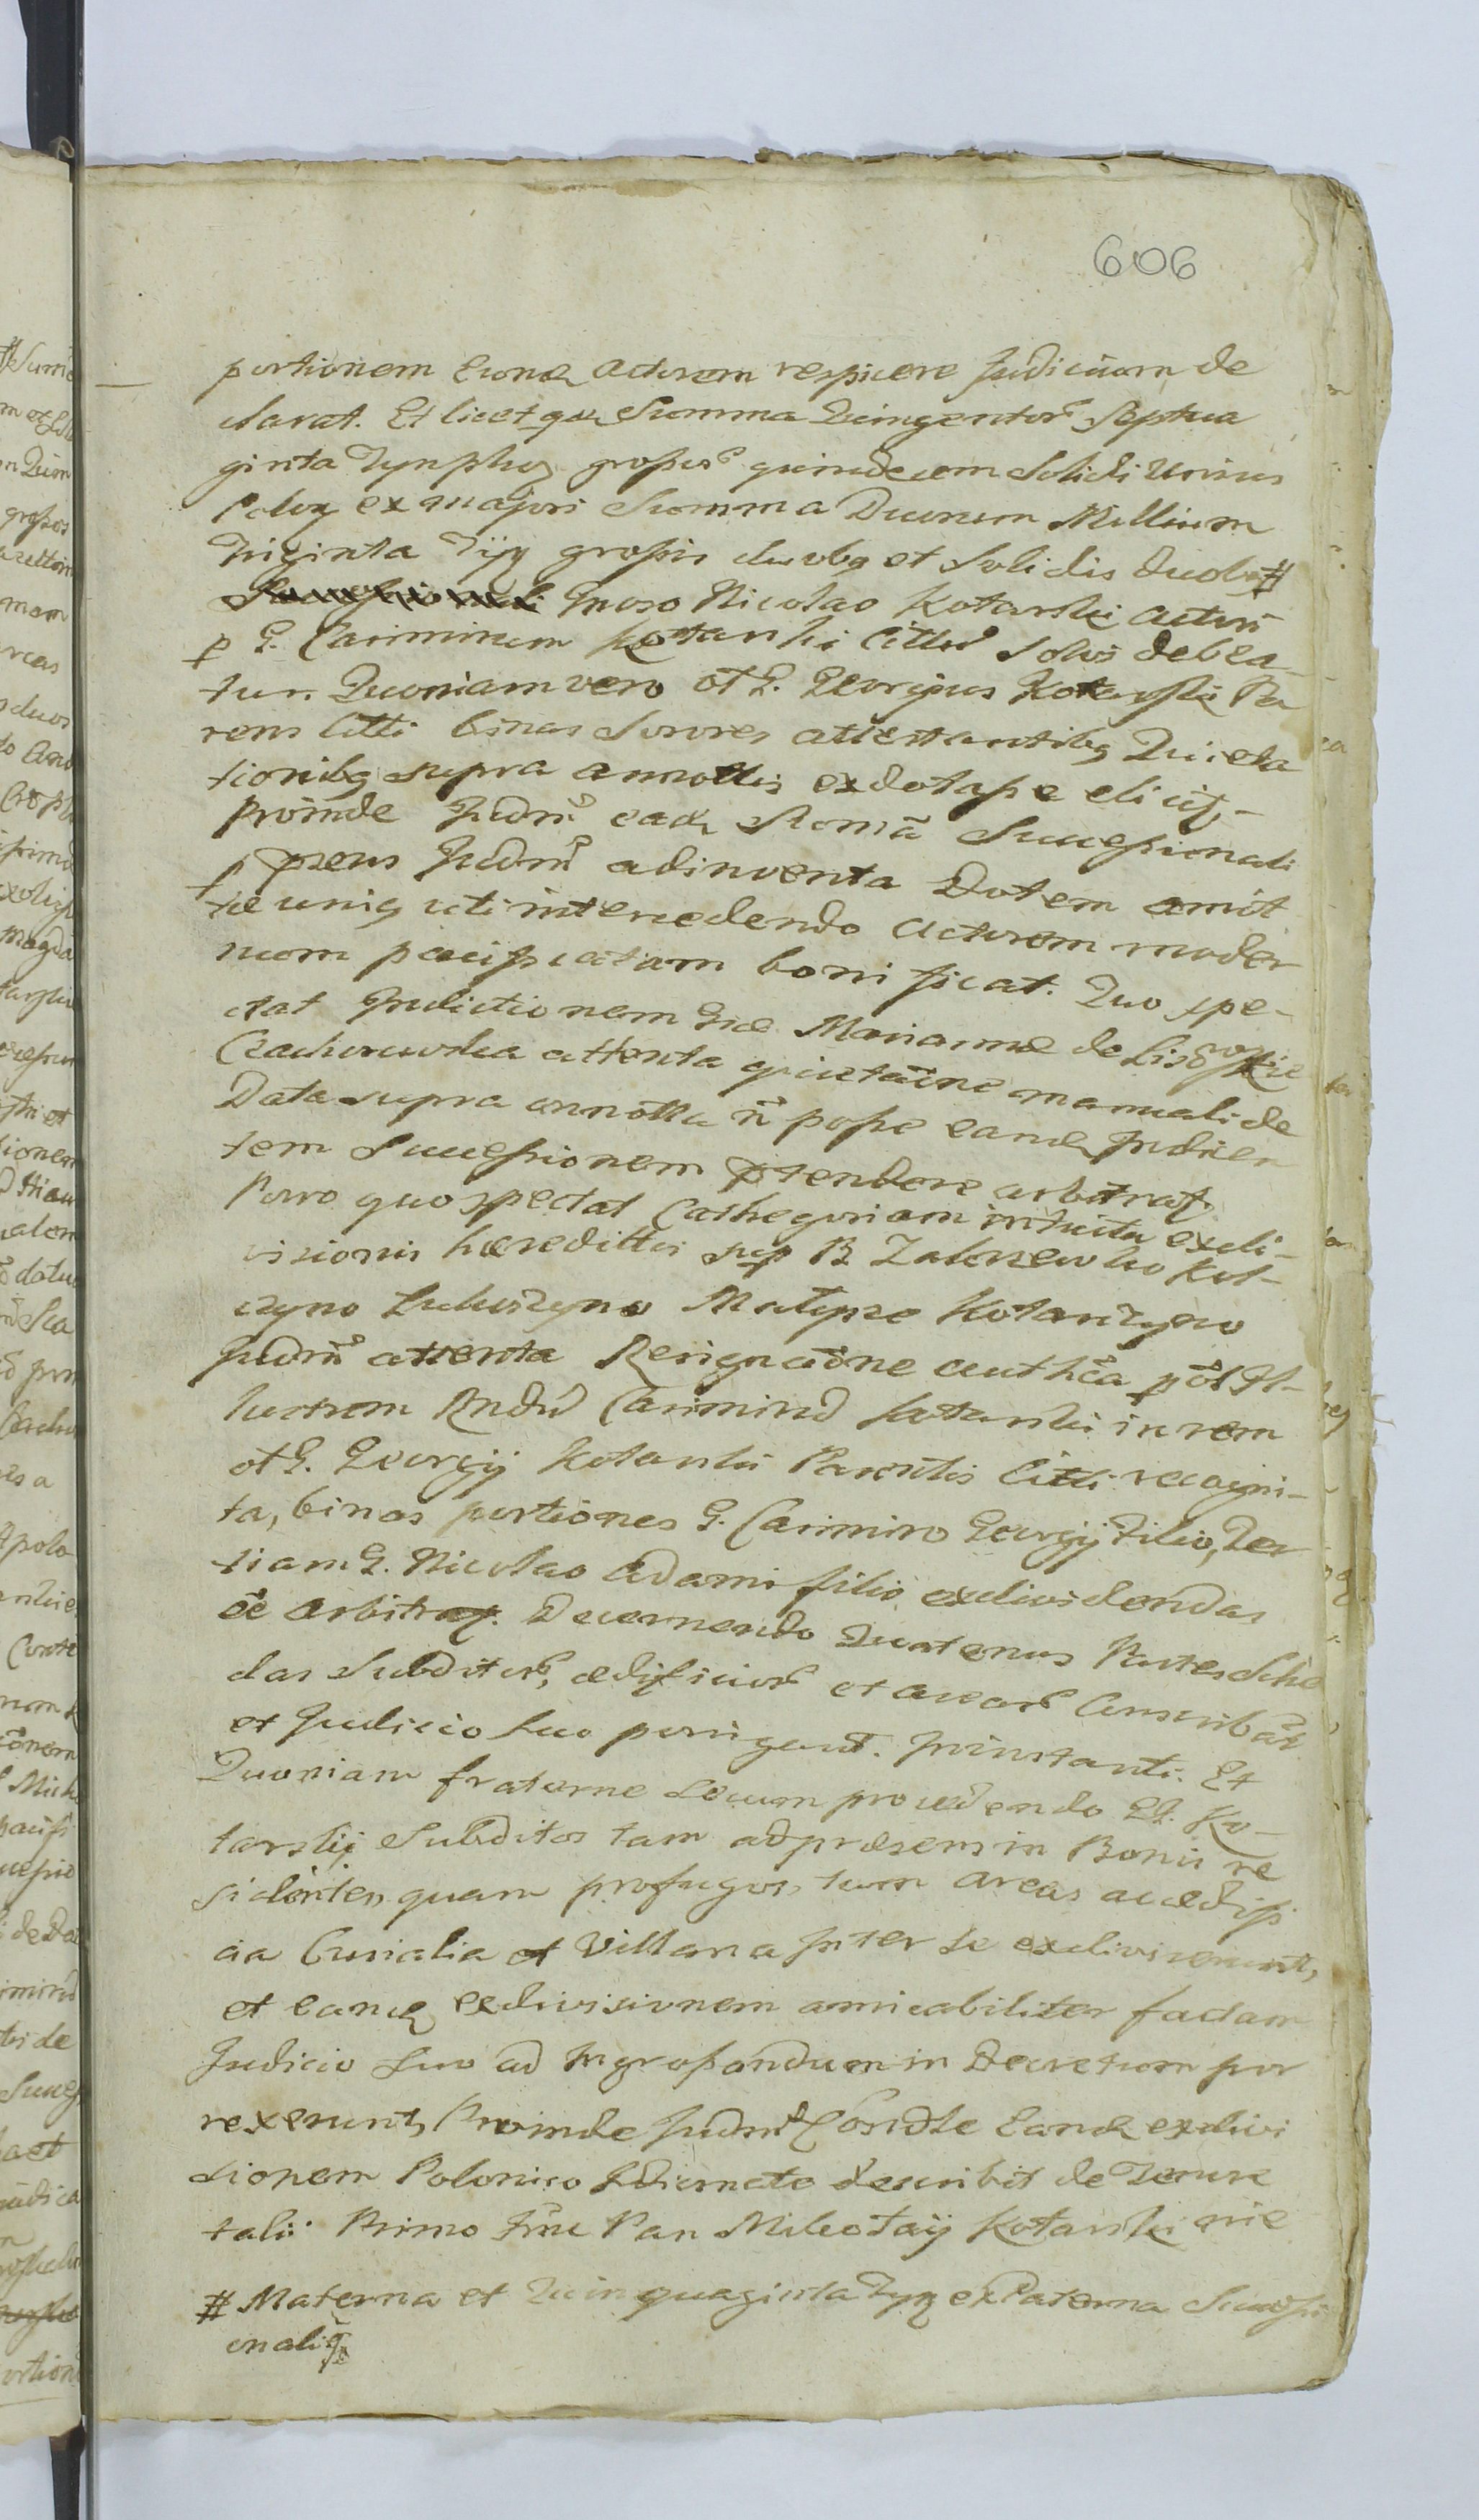 606
portionem eund actorem respicere Judicium de
clarat. Et licet qdem Summa Quingentor Septua
ginta Tynphor grosor quindecem Solidi Unius
Polon ex majori Summa Duorum Millium
Triginta Typ grosis duobq et Solidis duobq #
Gnoso Nicolao Kotarski actori
p G. Casimirum Kotarski Cittu Solvi debea
tur. Quoniam vero ol G. Georgius Kotarski Pa
rens Citti binas Sorores attestantibq Quieta
tionibq supra annottis exdotasse elicit,
proinde Judm eadem Summa Successionali
p prens Judm adinventa Dotem amit
uti intercedendo Actorem moder
num participatam bonificat. Quo spe-
ctat Indictionem Gsae Marianna de
Czachorowska attenta quietatione manuali de
Data supra annotta n posse eand Indicen
tem Successionem ptendere arbitrat.
Porro quo spectat Cathegoriam intuitu exdi-
visionis haeredittis sup B Zaborzewko Kot-
Kotarszyno
Judm attenta Resignatione authca p ol Il-
lustrem Rndu Casimiru Kotarski in rem
ol G. Georgij Kotarski Parentis Citti recogni-
ta, binas portiones G. Casimiro Georgij Filio, Ter
tiam G. Nicolao Adami filio exdividendas
ee arbitrat. Decernendo Quatenus Partes Sche
das Subditor, aedificior et arear Conscribāt
et Judicio suo porrigant. pinstanti. Et
Quoniam fraterne secum procedendo GG. Ko-
tarskij Subditos tam ad praesens in Bonis re
sidentes, quam profugos, tum areas ac aedifi
cia Curialia et Villana Inter se exdiviserunt,
et eand exdivisionem amicabiliter factam
Judicio suo ad Ingrosandum in Decretum por
rexerunt, Proinde Judm eand exdivi
sionem Polonico Idiomate describit de Tenore
tali: Primo Pan Mikołaÿ Kotarski
# Materna et Quinquaginta Typ ex Paterna Successi
onali